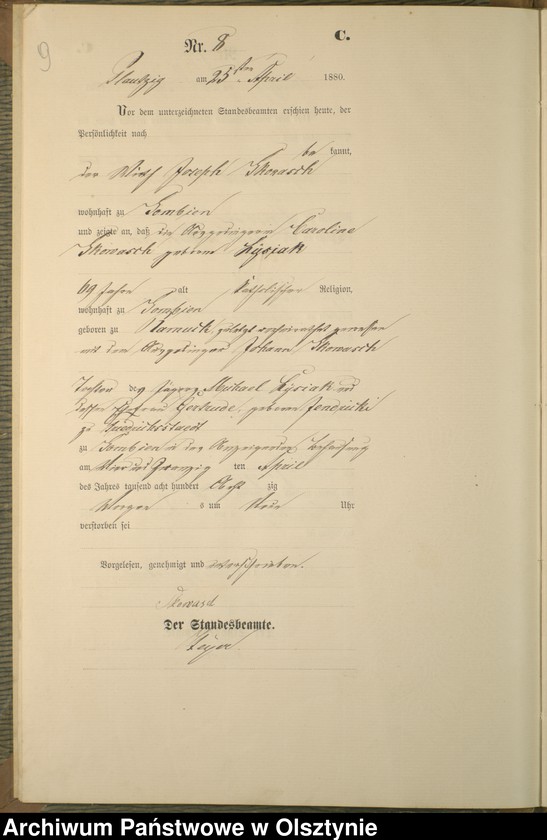 9
Nr. 8
C.
Plautzig am 25ten April 1880.
Vor dem unterzeichneten Standesbeamten erschien heute, der
Persönlichkeit nach
be kannt,
der Wirth Joseph Skowasch
wohnhaft zu Sombien
und zeigte an, daß die Caroline
Skowasch geborene Lysiak
69 Jahre alt katholischer Religion,
wohnhaft zu Sombien
geboren zu Ramuck, zuletzt verheirathet gewesen
mit dem Johann Skowasch
Tochter des Michael Lysiak und
dessen Ehefrau Gertrude, geborene
zu
zu Sombien in der Behausung
am vier und zwanzig ten April
des Jahres tausend acht hundert acht zig
Morgen s um Uhr
verstorben sei
Vorgelesen, genehmigt und unterschrieben.
Der Standesbeamte.
Archiwum Państwowe w Olsztynie